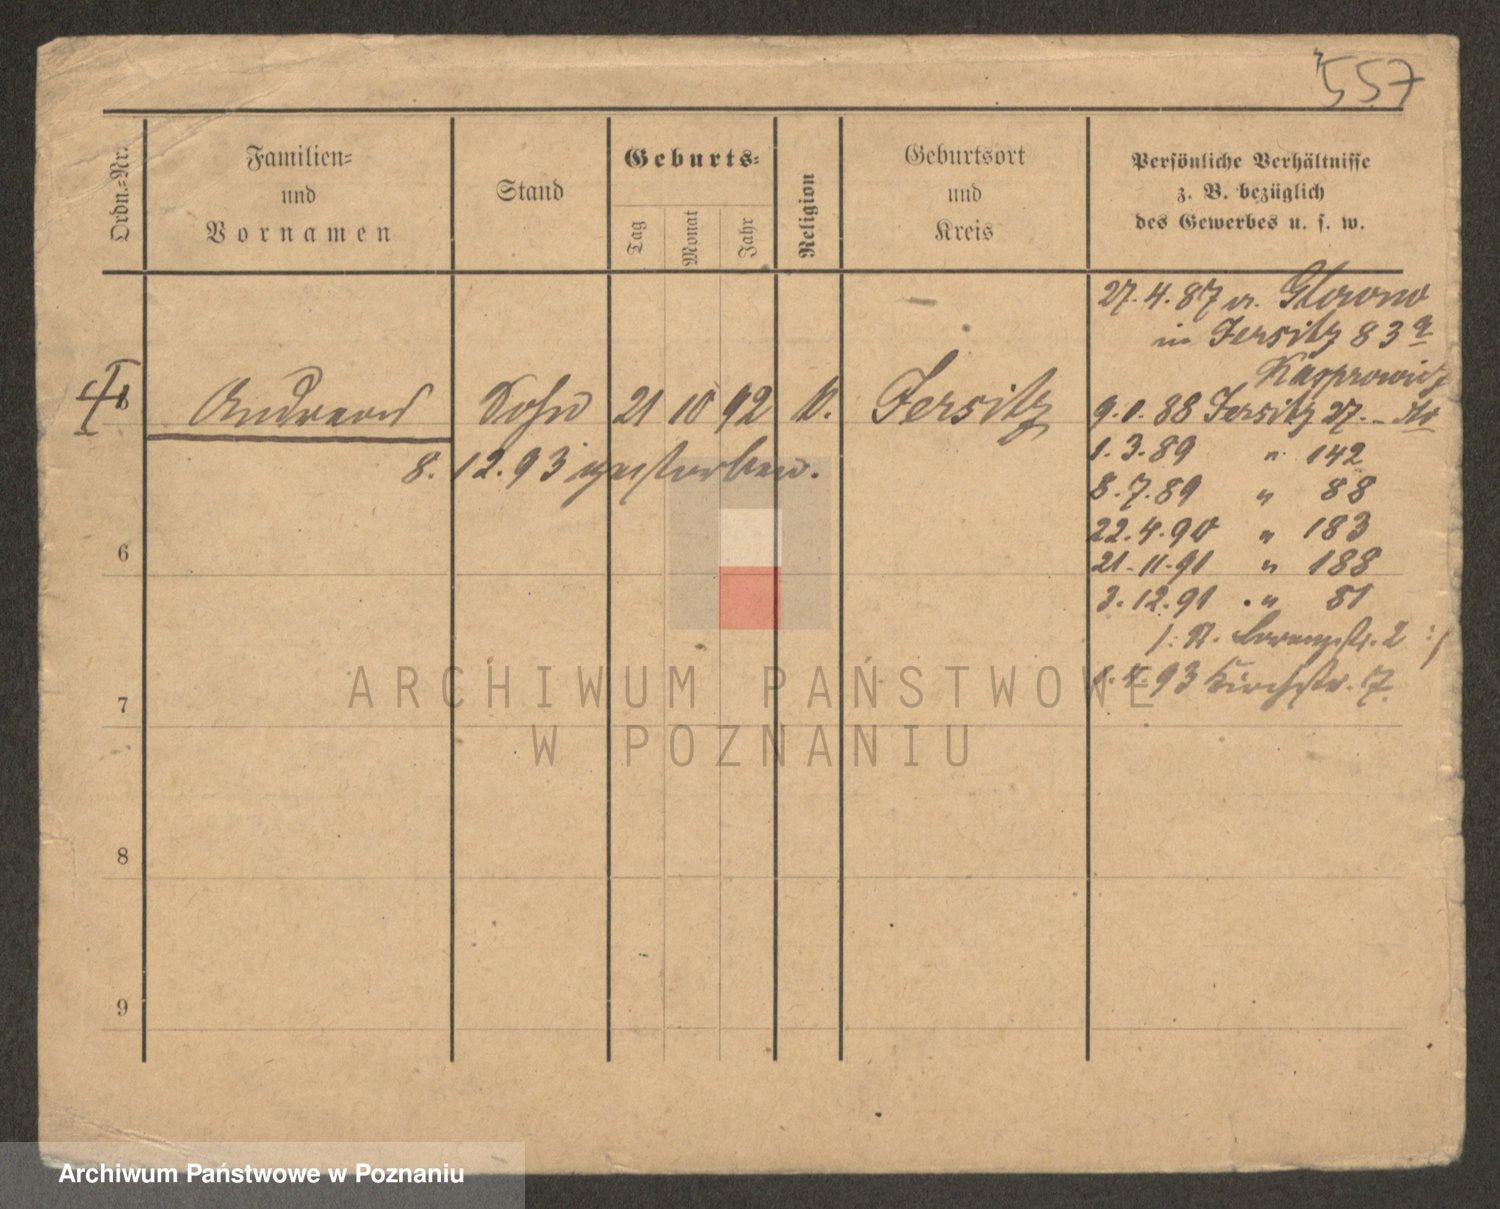 557
Ordn.-Nr.
Familien-
und
Vornamen
Stand
Geburts-
Tag
Monat
Jahr
Religion
Geburtsort
und
Kreis
Persönliche Verhältnisse
z. B. bezüglich
des Gewerbes u. s. w.
27.4.87 v. Glowno
in Jersitz 83 a
Kasprowicz
Andreas Sohn 21 10 92 k. Jersitz
9.1.88 Jersitz 27.
8.12.93 gestorben.
1.3.89 " 142
8.7.89 " 88
22.4.90 " 183
21.11.91 " 188
3.12.91 " 81
2 :/
93 Kirchstr. 7.
6
7
8
9
ARCHIWUM PAŃSTWOWE
W POZNANIU
Archiwum Państwowe w Poznaniu